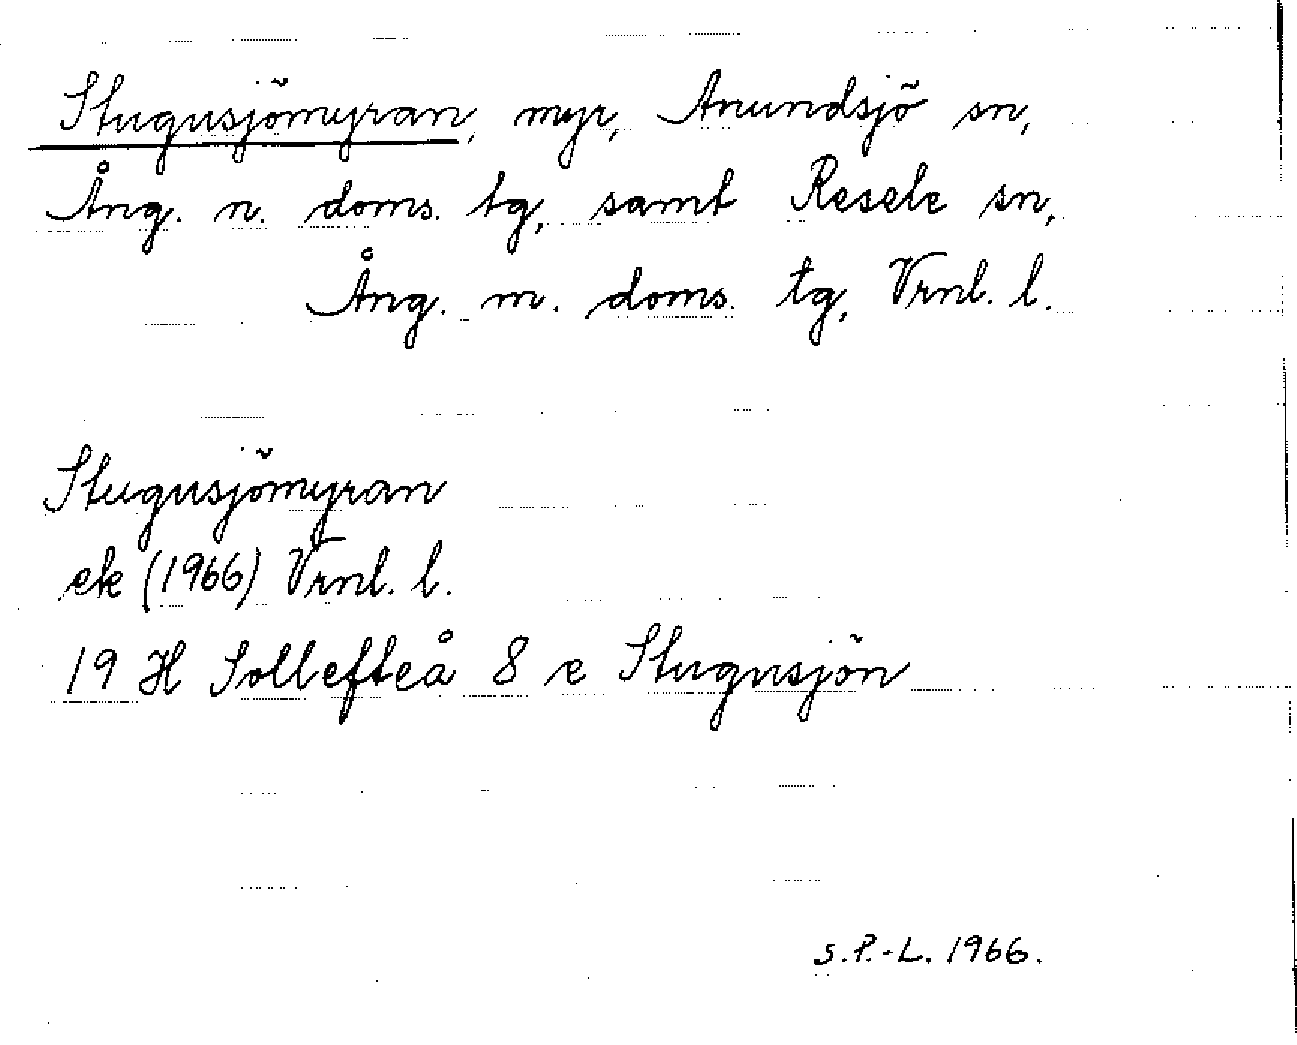 Stugusjömyran, myr, Anundsjö sn,
Ång. n. doms. tg, samt Resele sn,
Ång. m. doms. tg, Vrnl. l.
Stugusjömyran
ek (1966) Vrnl. l.
19 H Sollefteå 8 e Stugusjön
S.P.-L. 1966.